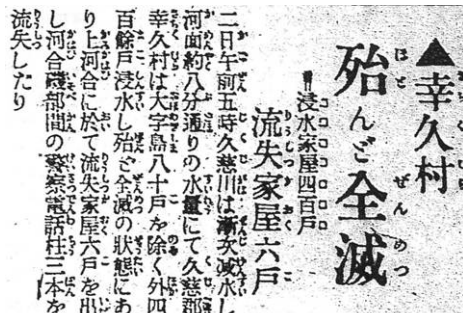 ▲幸久村
殆んど全滅
浸水家屋四百戸
流失家屋六戸
二日午前五時久慈川は漸次減水し
河面約八分通りの水量にて久慈郡
幸久村は大字島八十戸を除く外四
百餘戸浸水し殆ど全滅の狀態にあ
り上河合に於て流失家屋六戸を出
し河合磯部間の警察電話柱三本を
流失したり